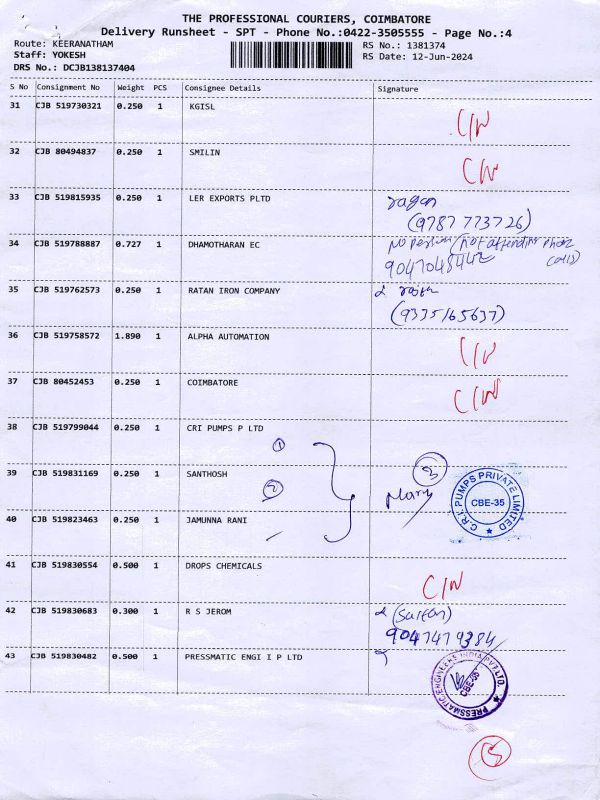 THE PROFESSIONAL COURIERS, COIMBATORE
Delivery Runsheet - SPT - Phone No.:0422-3505555 - Page No.:4
Route: KEERANATHAM RS No.: 1381374
Staff: YOKESH RS Date: 12-Jun-2024
DRS No.: DCJB138137404
S No Consignment No Weight PCS Consignee Details Signature
31 CJB 519730321 0.250 1 KGISL C/N
32 CJB 80494837 0.250 1 SMILIN C/N
33 CJB 519815935 0.250 1 LER EXPORTS PLTD
(9787 773726)
34 CJB 519788887 0.727 1 DHAMOTHARAN EC
35 CJB 519762573 0.250 1 RATAN IRON COMPANY
(9335165637)
36 CJB 519758572 1.890 1 ALPHA AUTOMATION C/N
37 CJB 80452453 0.250 1 COIMBATORE C/N
38 CJB 519799044 0.250 1 CRI PUMPS P LTD
1
39 CJB 519831169 0.250 1 SANTHOSH
2 3
C.R.I. PUMPS PRIVATE LIMITED
CBE-35
40 CJB 519823463 0.250 1 JAMUNNA RANI
41 CJB 519830554 0.500 1 DROPS CHEMICALS C/N
42 CJB 519830683 0.300 1 R S JEROM
9047479384
43 CJB 519830482 0.500 1 PRESSMATIC ENGI I P LTD
PRESSMATIC ENGINEERS INDIA PVT LTD.